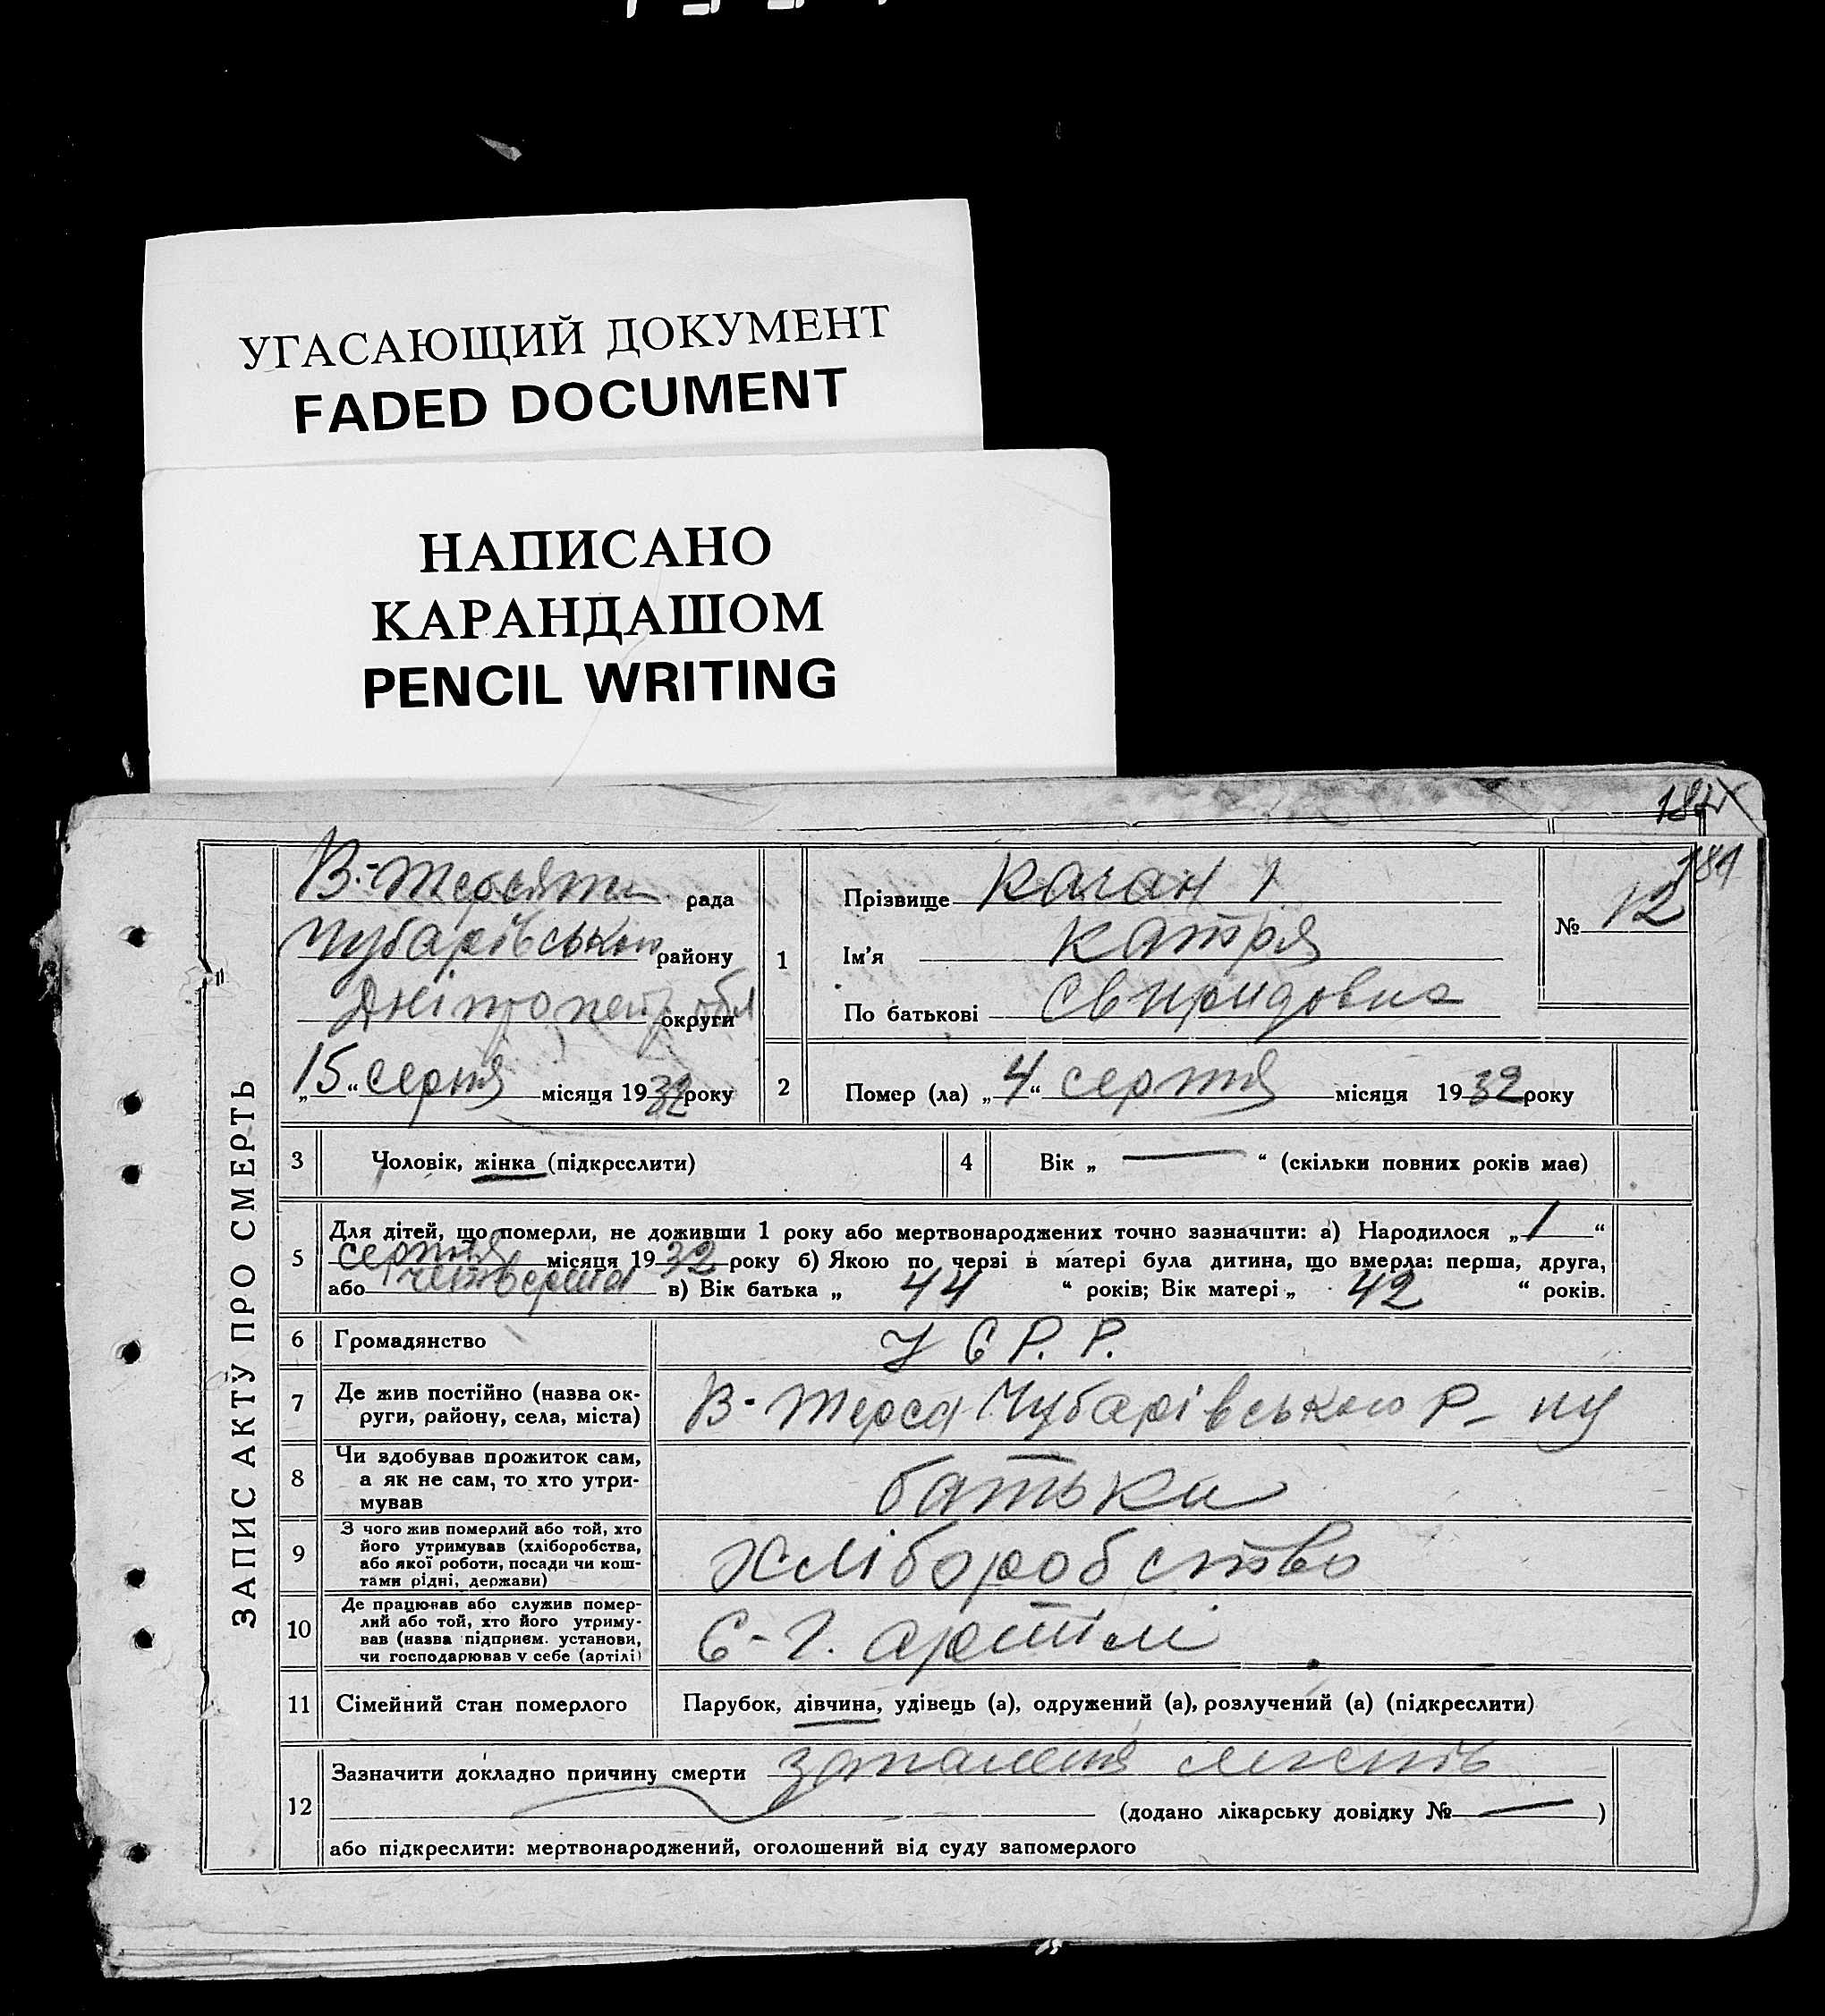 УГАСАЮЩИЙ ДОКУМЕНТ
FADED DOCUMENT
НАПИСАНО
КАРАНДАШОМ
PENCIL WRITING
181
ЗАПИС АКТУ ПРО СМЕРТЬ
рада
Чубарівського району
Дніпропетр обл округи
„15“ серпня місяця 1932 року
1
Прізвище Каган
Ім'я Катря
По батькові Свиридовна
№ 12
2
Помер (ла) „4“ серпня місяця 1932 року
3 Чоловік, жінка (підкреслити)
4 Вік „ — “ (скільки повних років має)
5 Для дітей, що померли, не доживши 1 року або мертвонароджених точно зазначити: а) Народилося „1“
серпня місяця 1932 року б) Якою по черзі в матері була дитина, що вмерла: перша, друга,
або четверта в) Вік батька „ 44 “ років; Вік матері „ 42 “ років.
6 Громадянство У С Р. Р.
7 Де жив постійно (назва ок-
руги, району, села, міста) В-Терса Чубарівського Р-ну
8 Чи здобував прожиток сам,
а як не сам, то хто утри-
мував батьки
9 З чого жив померлий або той, хто
його утримував (хліборобства,
або якої роботи, посади чи кош-
тами рідні, держави) Хліборобство
10 Де працював або служив помер-
лий або той, хто його утриму-
вав (назва підприєм. установи,
чи господарював у себе (артілі) С-г. артілі
11 Сімейний стан померлого Парубок, дівчина, удівець (а), одружений (а), розлучений (а) (підкреслити)
12 Зазначити докладно причину смерти запалення легенів
(додано лікарську довідку № — )
або підкреслити: мертвонароджений, оголошений від суду запомерлого